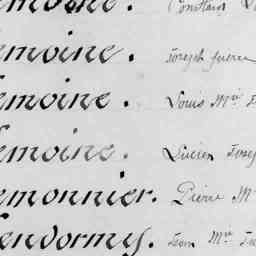 emoine. Constant
emoine. Joseph
emoine. Louis Mie
emoine. Lucien Josep
emonnier. Pierre M
endormy. Jean Mie